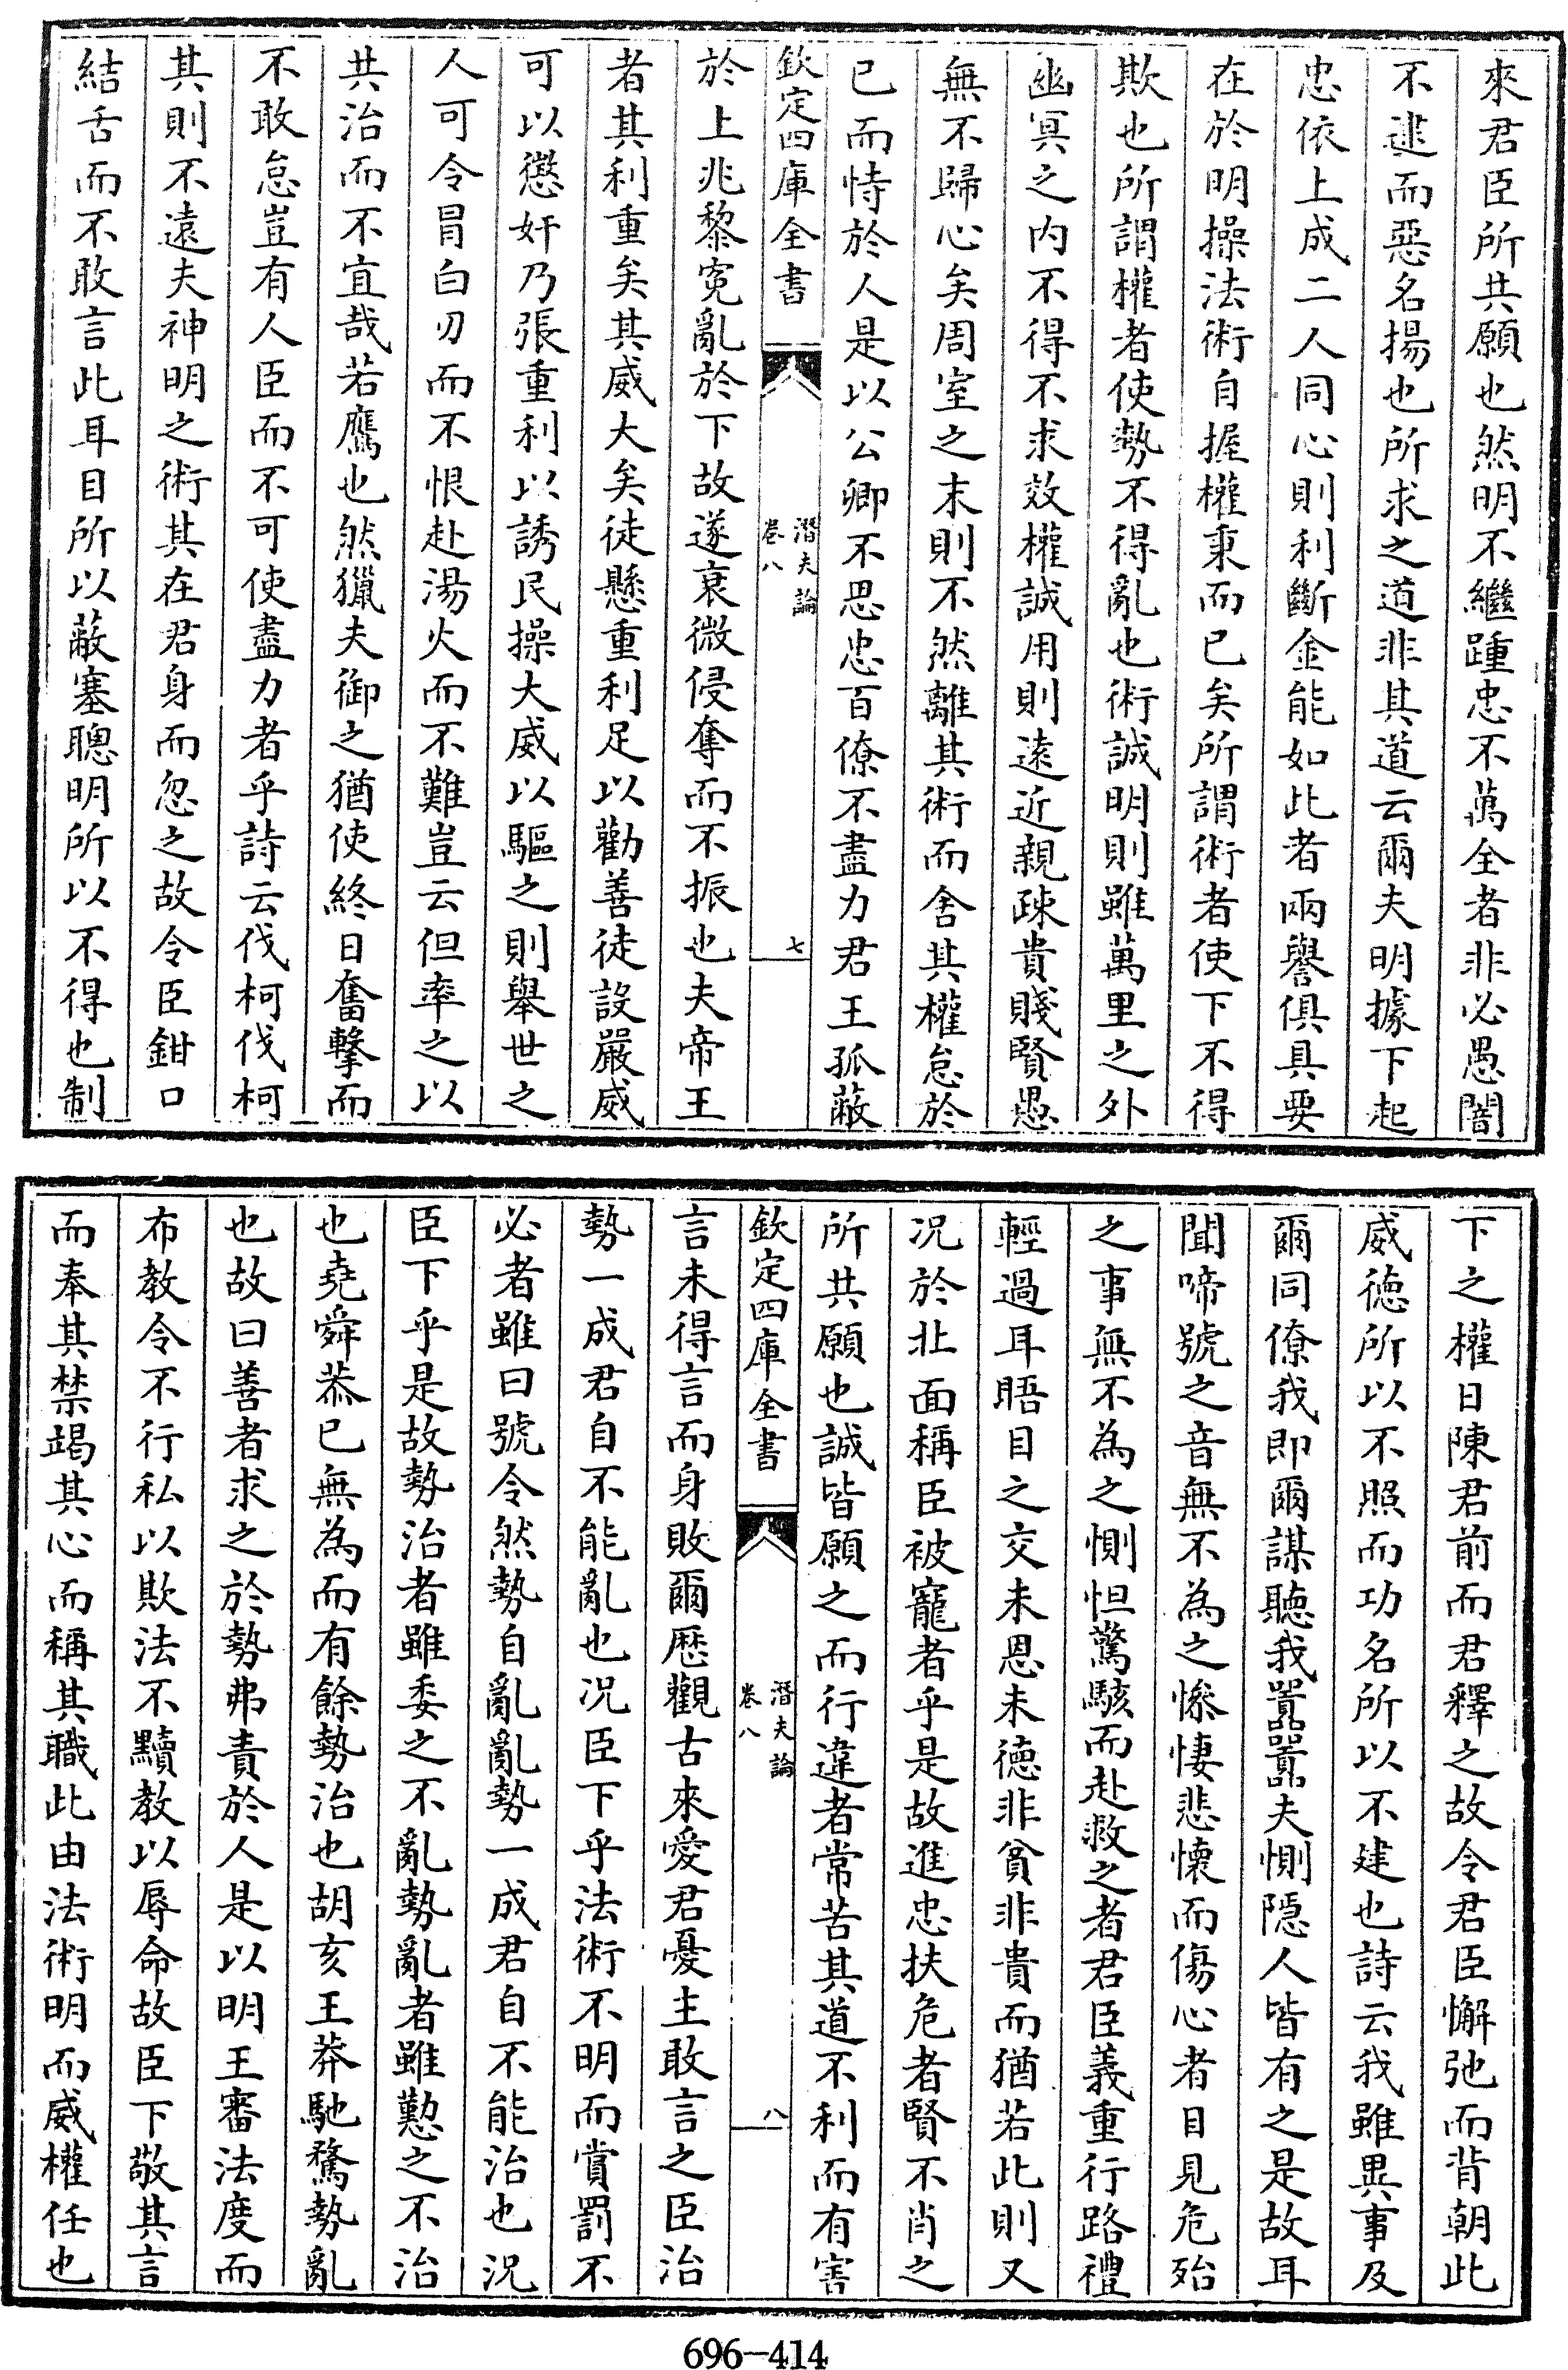 來君臣所共願也然明不繼踵忠不萬全者非必愚闇
不逮而惡名揚也所求之道非其道云爾夫明據下起
忠依上成二人同心則利斷金能如此者兩譽俱具要
在於明操法術自握權秉而已矣所謂術者使下不得
欺也所謂權者使勢不得亂也術誠明則雖萬里之外
幽冥之内不得不求效權誠用則遠近親疎貴賤賢愚
無不歸心矣周室之末則不然離其術而舍其權怠於
已而恃於人是以公卿不思忠百僚不盡力君王孤蔽
欽定四庫全書
潛夫論
卷八
七
於上兆黎寃亂於下故遂衰微侵奪而不振也夫帝王
者其利重矣其威大矣徒懸重利足以勸善徒設嚴威
可以懲奸乃張重利以誘民操大威以驅之則舉世之
人可令冒白刃而不恨赴湯火而不難豈云但率之以
共治而不宜哉若鷹也然獵夫御之猶使終日奮擊而
不敢怠豈有人臣而不可使盡力者乎詩云伐柯伐柯
其則不遠夫神明之術其在君身而忽之故令臣鉗口
結舌而不敢言此耳目所以蔽塞聰明所以不得也制
下之權日陳君前而君釋之故令君臣懈弛而背朝此
威德所以不照而功名所以不建也詩云我雖異事及
爾同僚我即爾謀聽我嚚嚚夫惻隱人皆有之是故耳
聞啼號之音無不為之慘悽悲懐而傷心者目見危殆
之事無不為之惻怛驚駭而赴救之者君臣義重行路禮
輕過耳晤目之交未恩未徳非貧非貴而猶若此則又
况於北面稱臣被寵者乎是故進忠扶危者賢不肖之
所共願也誠皆願之而行違者常苦其道不利而有害
欽定四庫全書
潛夫論
卷八
八
言未得言而身敗爾歷觀古來愛君憂主敢言之臣治
勢一成君自不能亂也况臣下乎法術不明而賞罰不
必者雖曰號令然勢自亂亂勢一成君自不能治也況
臣下乎是故勢治者雖委之不亂勢亂者雖懃之不治
也堯舜恭已無為而有餘勢治也胡亥王莽馳騖勢亂
也故曰善者求之於勢弗責於人是以明王審法度而
布教令不行私以欺法不黷教以辱命故臣下敬其言
而奉其禁竭其心而稱其職此由法術明而威權任也
696-414